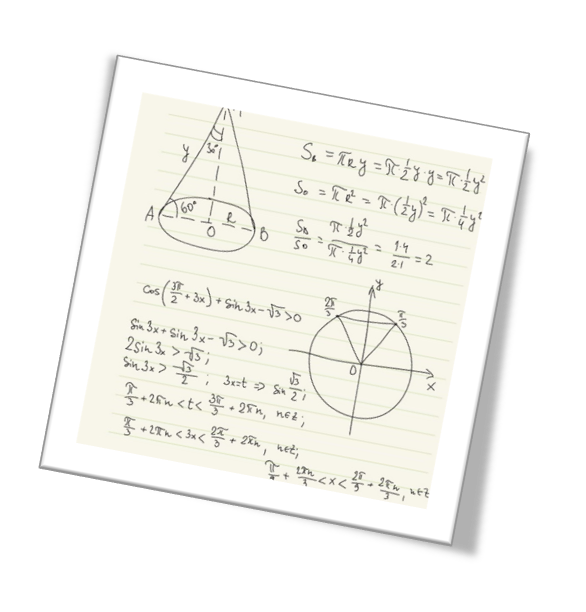 y 30°
A 60° O R B
Sв = πRy = π·½y·y = π·½y²
So = πR² = π·(½y)² = π·¼y²
Sв/So = π·½y²/π·¼y² = 1·4/2·1 = 2
cos(3π/2 + 3x) + sin 3x - √3 > 0
y 2π/3 π/3 O x
sin 3x + sin 3x - √3 > 0;
2 sin 3x > √3;
sin 3x > √3/2; 3x = t ⇒ sin √3/2;
π/3 + 2πn < t < 3π/3 + 2πn, n∈z;
π/3 + 2πn < 3x < 2π/3 + 2πn, n∈z;
+ 2πn/3 < x < 2π/9 + 2πn/3, n∈z